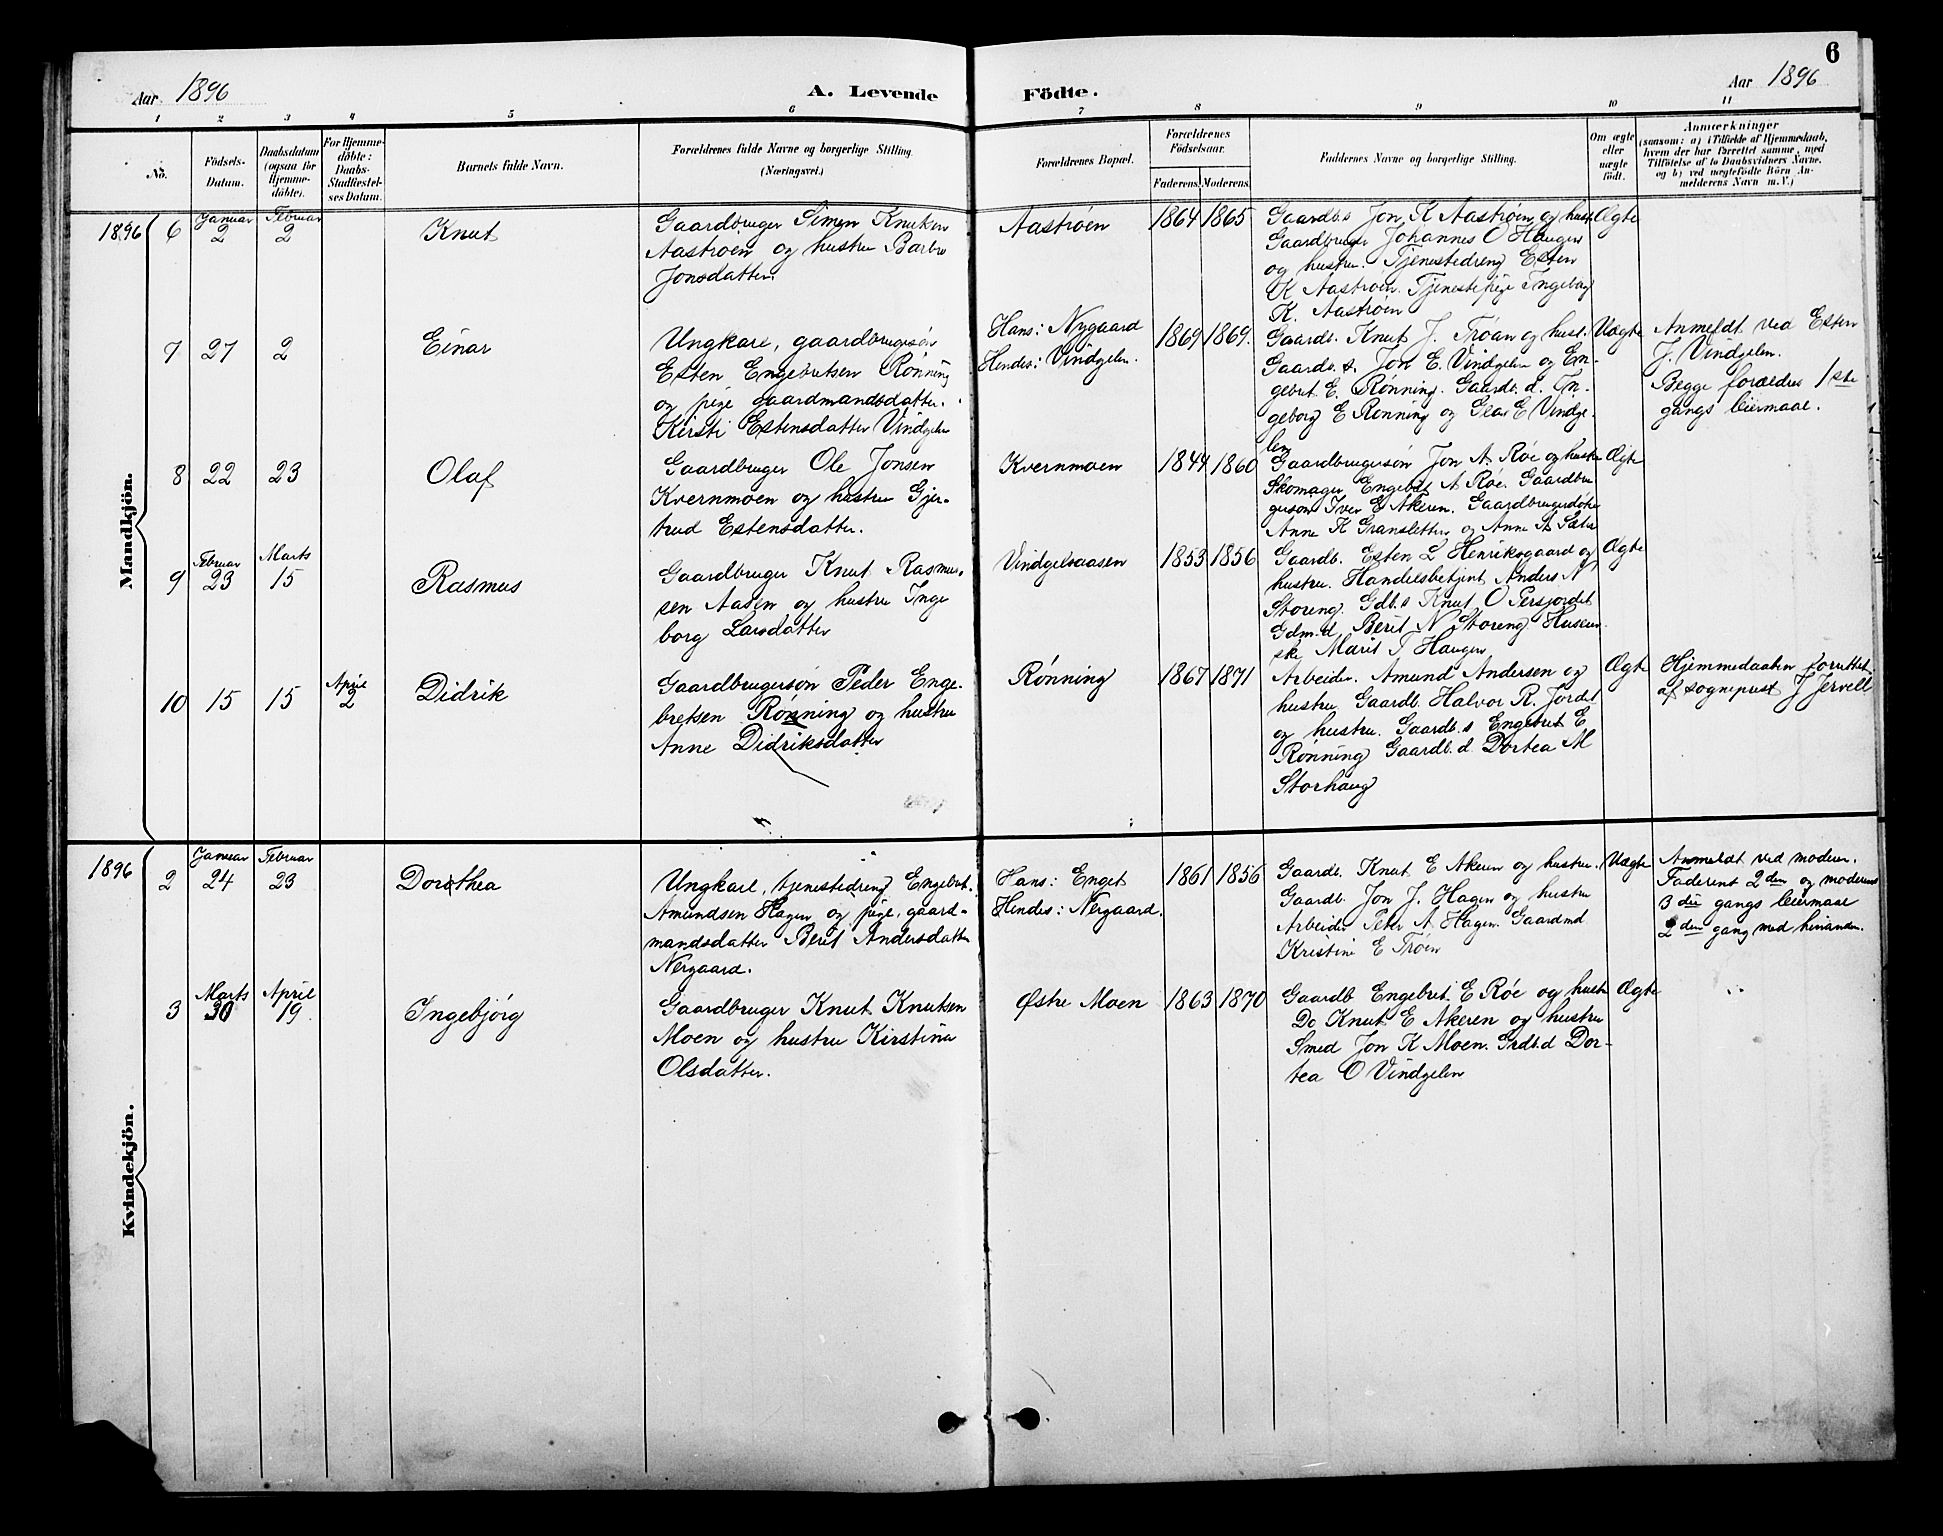 6
Aar 1896 A. Levende Födte. Aar 1896
1 2 3 4 5 6 7 8 9 10 11
No.
Födsels-
Datum.
Daabsdatum
(ogsaa for
Hjemme-
döbte).
For Hjemme-
döbte:
Daabs-
Stadfæstel-
ses Datum.
Barnets fulde Navn.
Forældrenes fulde Navne og borgerlige Stilling
(Næringsvei.)
Forældrenes Bopæl.
Forældrenes
Födselsaar.
Faderens. Moderens.
Faddernes Navne og borgerlige Stilling.
Om ægte
eller
uægte
født.
Anmærkninger
(saasom: a) i Tilfælde af Hjemmedaab,
hvem der har forrettet samme, med
Tilföielse af to Daabsvidners Navne.
og b) ved uægtefödte Börn An-
melderens Navn m. V.)
Mandkjön.
1896 6 Januar 2 Februar 2 Knut
Gaardbruger Simen Knutsen
Aastrøen og hustru Barbro
Jonsdatter.
Aastrøen 1864 1865
Gaardb.s Jon K Aastrøen og hust
Gaardbruger Johannes O Haugen
og hustru. Tjenestedreng Esten
K Aastrøen. Tjenestepige Ingebor
K. Aastrøen
Ægte
7 27 2 Einar
Ungkarl, gaardbrugersøn
Esten Engebretsen Rønning
og pige gaardmandsdatter.
Kirsti Estensdatter Vindgelen
Hans: Nygaard
Hendes: Vindgelen.
1869 1869.
Gaardb. Knut J. Trøan og hust.
Gaardb. s. Jon E. Vindgelen og En-
gebret E. Rønning. Gaardb. d. In-
geborg E Rønning og E Vindge-
len
Uægte
Anmeldt ved Esten
J. Vindgelen.
Begge forældres 1ste
gangs leiermaal.
8 22 23 Olaf
Gaardbruger Ole Jonsen
Kvernmoen og hustru Gjer-
trud Estensdatter.
Kvernmoen 1844 1860
Gaardbrugersøn Jon A. Røe og hustru
Skomager Engebret A Røe. Gaardbru
gersøn Iver E Akeren. Gaardbrugerdøtre
Anne K Gransletten og Anne A
Ægte
9 Februar 23 Marts 15 Rasmus
Gaardbruger Knut Rasmus-
sen Aasen og hustru Inge
borg Larsdatter
Vindgelsaasen 1853 1856
Gaardb. Esten L Henriksgaard og
hustru. Handelsbetjent Anders N
Storeng. Gdb.s Knut O Persjordet
Gdm.d. Berit N. Storeng. Huseier-
ske Marit T Haugen
Ægte
10 15 15 April 2 Didrik
Gaardbrugersøn Peder Enge-
bretsen Rønning og hustru
Anne Didriksdatter
Rønning 1867 1871
Arbeider. Amund Andersen og
hustru Gaardb. Halvor R. Jordet
og hustru. Gaardb. s Engebret E
Rønning Gaardb. d. Dortea M
Storhaug
Ægte
Hjemmedaaben forrettet
af sogneprest J Jervell
Kvindekjön.
1896 2 Januar 24 Februar 23 Dorothea
Ungkarl, tjenestedreng Engebret
Amundsen Hagen og pige, gaard-
mandsdatter Berit Andersdatter
Nergaard.
Hans: Enget
Hendes: Nergaard.
1861 1856
Gaardb. Knut E Akeren og hustru.
Gaardb. Jon J. Hagen og hustru
Arbeider Peter A Hagen. Gaardmd
Kristine E Trøen
Uægte
Anmeldt ved moderen.
Faderens 2den og moderens
3die gangs leiermaal
2den gang med hinanden.
3 Marts 30 April 19 Ingebjörg
Gaardbruger Knut Knutsen
Moen og hustru Kirstina
Olsdatter.
Østre Moen 1863 1870
Gaardb Engebret E Røe og hustr
Do Knut E Akeren og hustru
Smed Jon K Moen. Grdb.d Dor-
tea O Vindgelen
Ægte